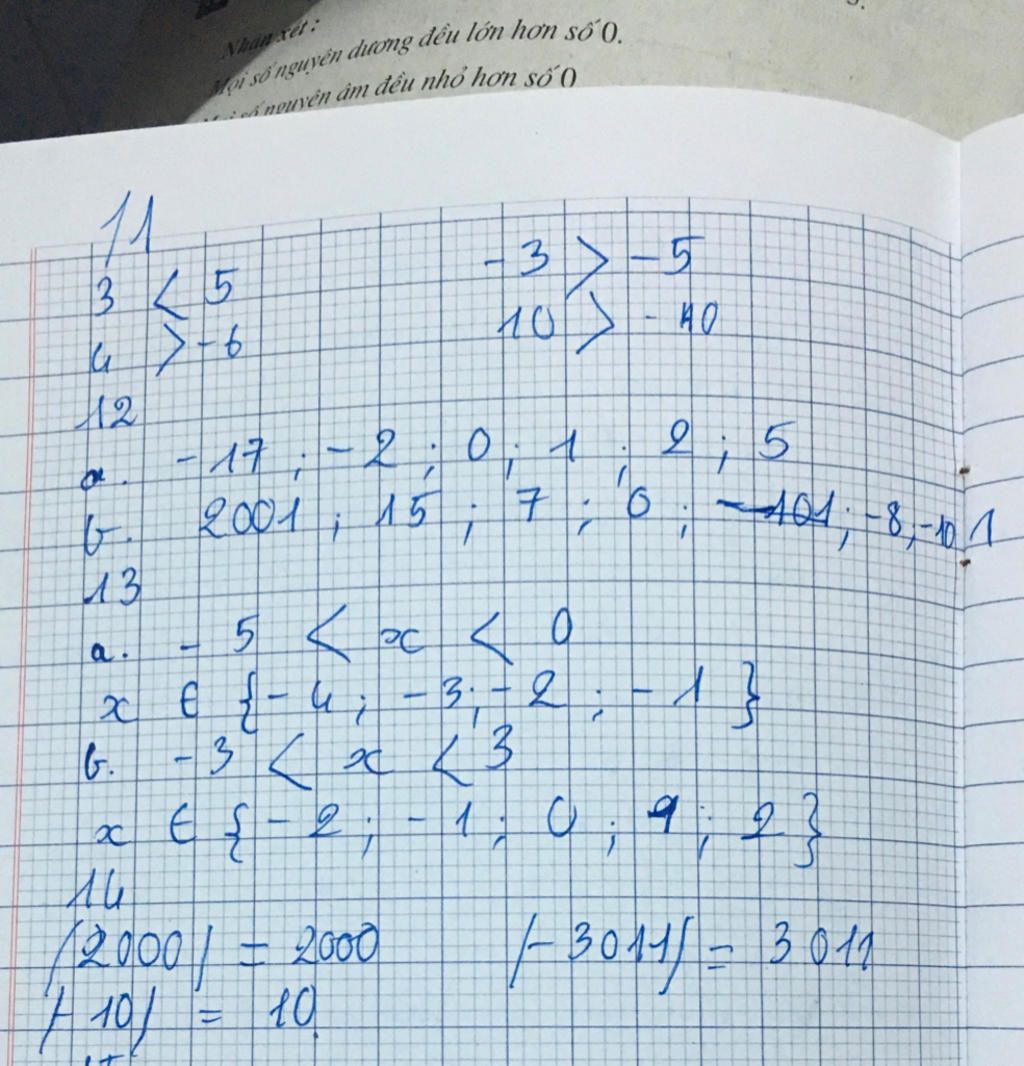 Nhận xét :
Mọi số nguyên dương đều lớn hơn số 0.
Mọi số nguyên âm đều nhỏ hơn số 0
11
3 < 5 -3 > -5
4 > -6 10 > -10
12
a. -17 ; -2 ; 0 ; 1 ; 2 ; 5
b. 2001 ; 15 ; 7 ; 0 ; -101 ; -8 ; -101
13
a. -5 < x < 0
x ∈ {-4 ; -3 ; -2 ; -1}
b. -3 < x < 3
x ∈ {-2 ; -1 ; 0 ; 1 ; 2}
14
|2000| = 2000 |-3011| = 3011
|-10| = 10